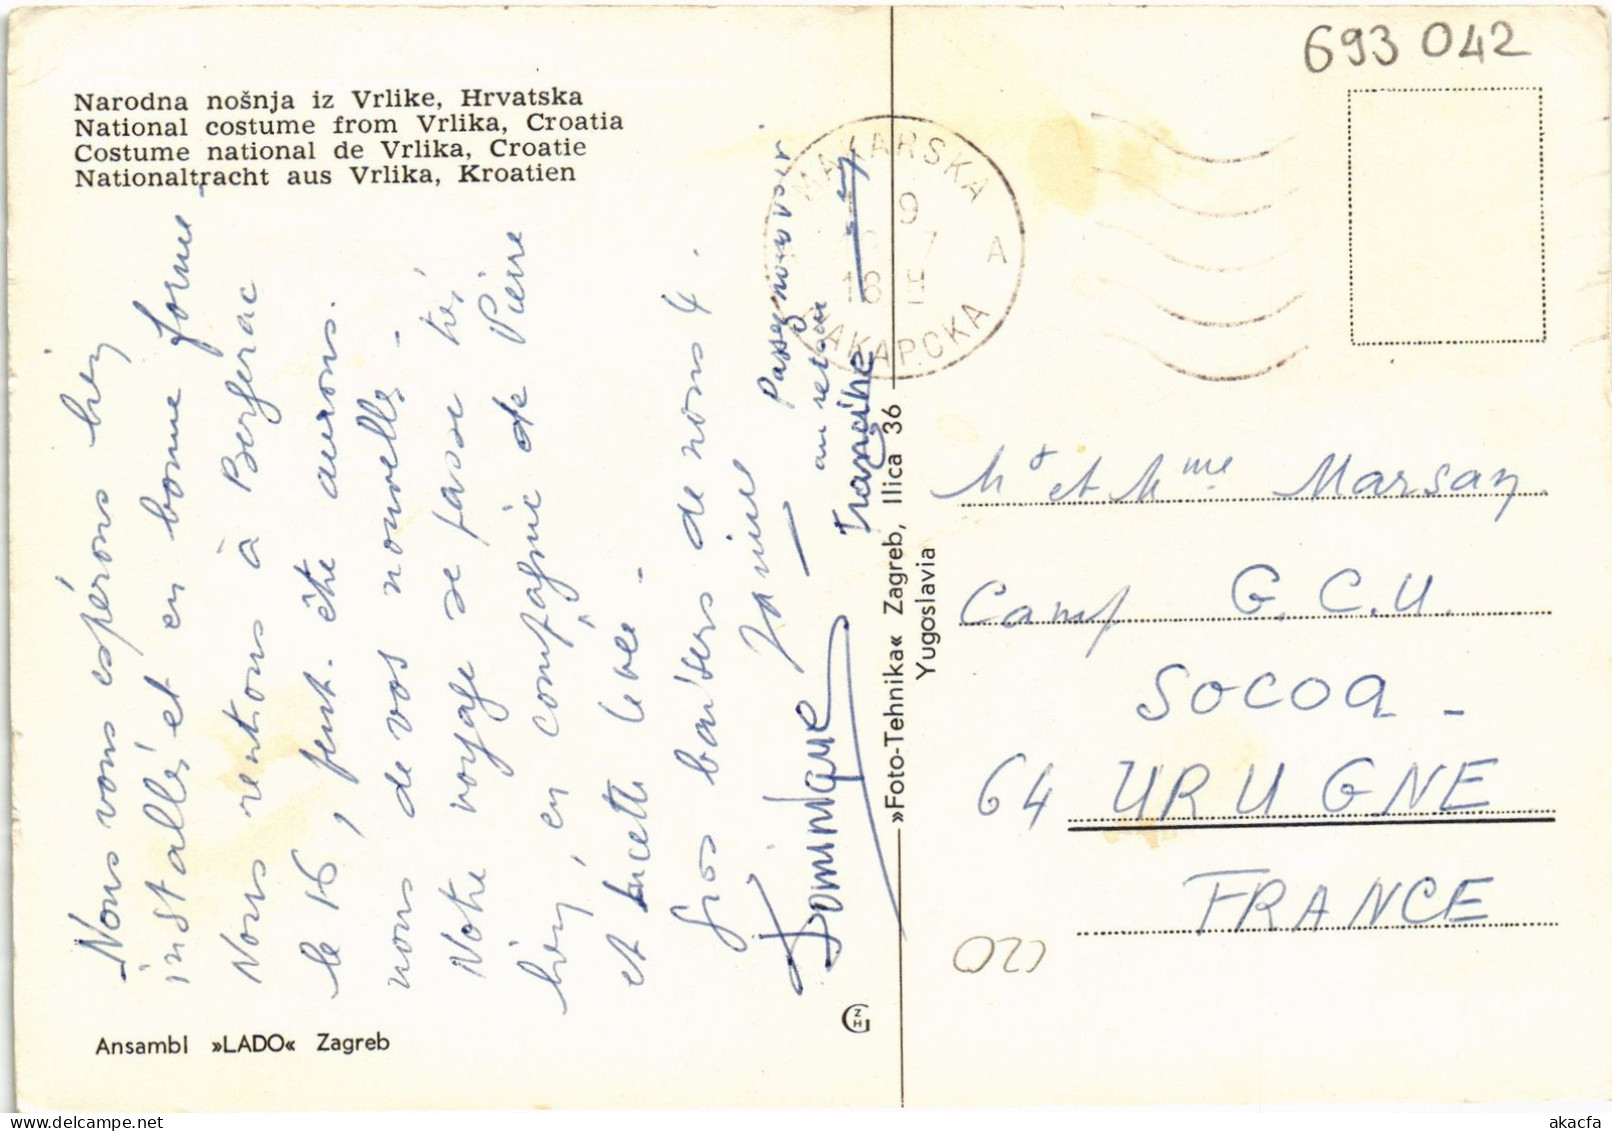 Narodna nošnja iz Vrlike, Hrvatska
National costume from Vrlika, Croatia
Costume national de Vrlika, Croatie
Nationaltracht aus Vrlika, Kroatien
Nous vous espérons bien
installés et en bonne forme
Nous rentrons à Bergerac
le 16, peut-être aurons
nous de vos nouvelles -
Notre voyage se passe très
bien, en compagnie de Pierre
et Lucette Levée -
Gros baisers de nous 4.
Janine
Dominique
Passez nous voir
au retour
Francine
Ansambl »LADO« Zagreb
»Foto-Tehnika« Zagreb, Ilica 36
Yugoslavia
ZH
MAKARSKA
9
7
18
A
МАКАРСКА
693 042
Mr et Mme Marsan
Camp G.C.U.
SOCOA -
64 URUGNE
FRANCE
020
akacfa.com